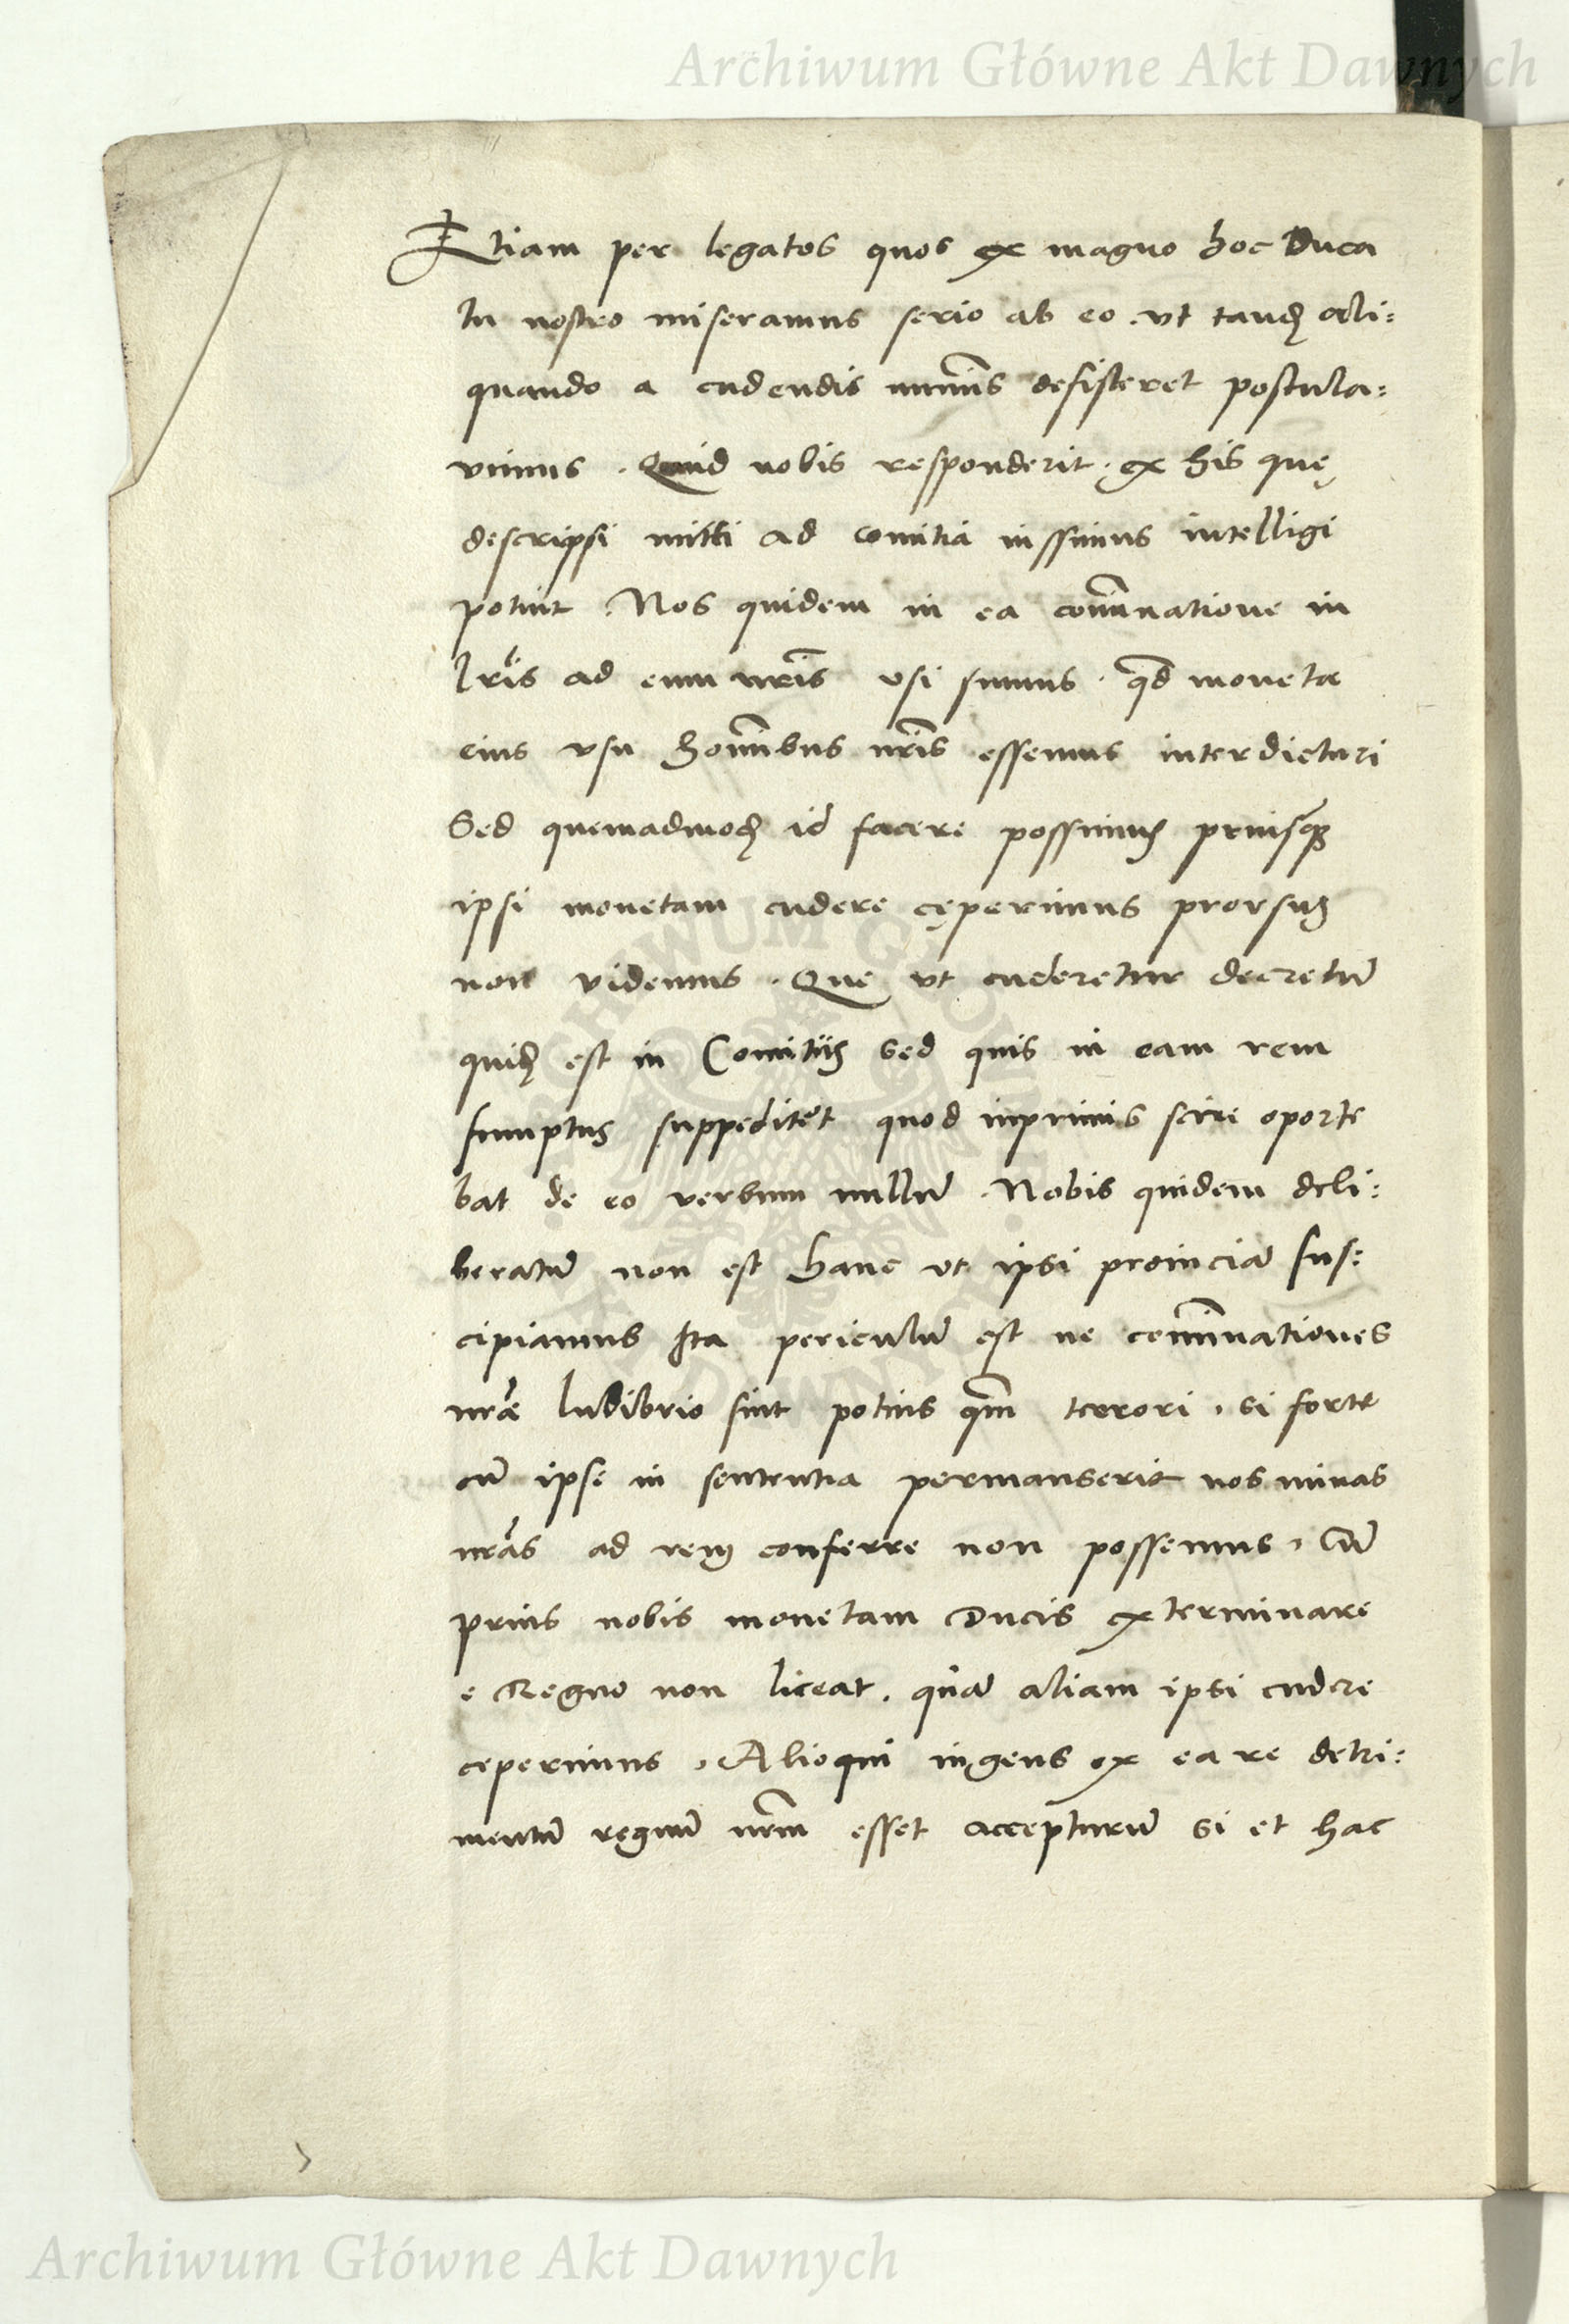 Archiwum Główne Akt Dawnych
Etiam per legatos quos ex magno hoc Duca
tu nostro miseramus serio ab eo . vt tandē ali:
quando a cudendis numīs desisteret postula:
vimus . Quid nobis responderit . ex his quę
descripsi mitti ad comitia iussimus intelligi
potuit . Nos quidem in ea comīnatione in
lr̃is ad eum nr̃is vsi sumus . qđ moneta
eius vsu homībus nr̃is essemus interdicturi
Sed quemadmodū id facere possimus priusq̃
ipsi monetam cudere cęperimus prorsus
non videmus . Que vt cuderetur decretū
quidē est in Comitiis sed quis in eam rem
sumptus suppeditet quod inprimis scire oporte
bat de eo verbum nullū . Nobis quidem deli:
beratū non est hanc vt ipsi prouinciā sus:
cipiamus Ita periculū est ne comīnationes
nr̃æ ludibrio sint potius qm̃ terrori , si forte
cū ipse in sententia permanserit nos minas
nr̃as ad rem conferre non possemus , Cū
prius nobis monetam Ducis exterminare
e Regno non liceat . quā aliam ipsi cudere
ceperimus , Alioqui ingens ex ea re detri:
mentū regnū nr̃m esset accepturū si et hac
Archiwum Główne Akt Dawnych